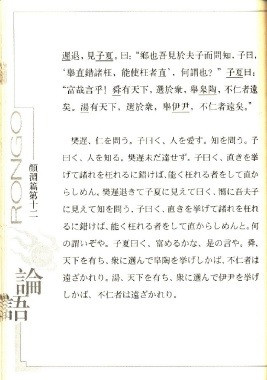 遲退,見子夏,曰:“鄉也吾見於夫子而問知,子曰,
‘舉直錯諸枉,能使枉者直’,何謂也?” 子夏曰:
“富哉言乎!舜有天下,選於衆,舉臯陶,不仁者遠
矣。湯有天下,選於衆,舉伊尹,不仁者遠矣。”
樊遅、仁を問う。子曰く、人を愛す。知を問う。子
曰く、人を知る。樊遅未だ達せず。子曰く、直きを挙
げて諸れを枉れるに錯けば、能く枉れる者をして直か
らしめん。樊遅退きて子夏に見えて曰く、嚮に吾夫子
に見えて知を問う、子曰く、直きを挙げて諸れを枉れ
るに錯けば、能く枉れる者をして直からしめんと。何
の謂いぞや。子夏曰く、富めるかな、是の言や。舜、
天下を有ち、衆に選んで皐陶を挙げしかば、不仁者は
遠ざかれり。湯、天下を有ち、衆に選んで伊尹を挙げ
しかば、不仁者は遠ざかれり。
RONGO
顔淵篇第十二
論語